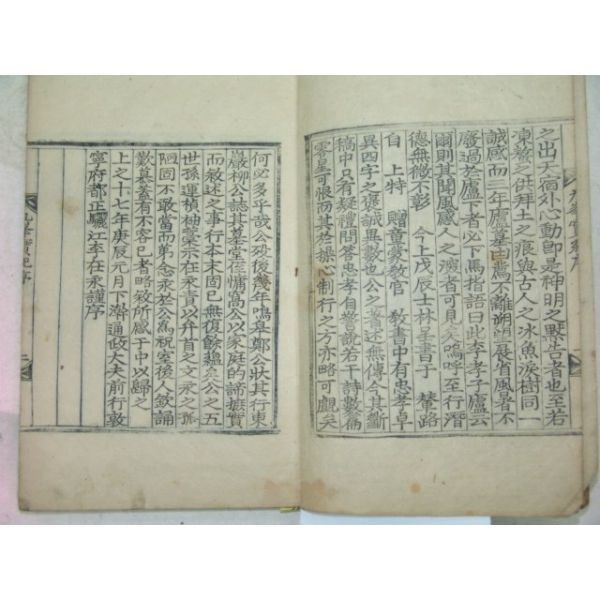 之出天宿外心動卽是神明之黙告者也至若
凍發之供拜土之痕與古人之氷魚淚樹同一
誠感而三年廬墓曲爲不離朔望展省風暑不
廢過於廬下者必下馬指語曰此李孝子廬云
爾則其聞風感人之深者可見矣嗚呼至行潛
德無微不彰 今上戊辰士林呈書于 輦路
自 上特 贈童蒙敎官 敎書中有忠孝卓
異四字之褒誠異數也公之著述無傳今其斷
稿中只有疑禮問答忠孝自警說若干詩數爲
零星可恨而其於操心制行之方亦略可觀矣
何必多乎哉公歿後幾年鳴皐鄭公狀其行東
巖柳公誌其墓堂侄慵窩公以家庭的諦摭實
而敘述之事行本末固已無復餘蘊矣公之五
世孫運楨袖藁示在永責以弁首之文永之孤
陋固不敢當而第念永於公爲祝室後人欽誦
歎慕蓋有不容已者略敘所感于中以歸之
上之十七年庚辰元月下澣通政大夫前行敦
寧府都正驪江李在永謹序